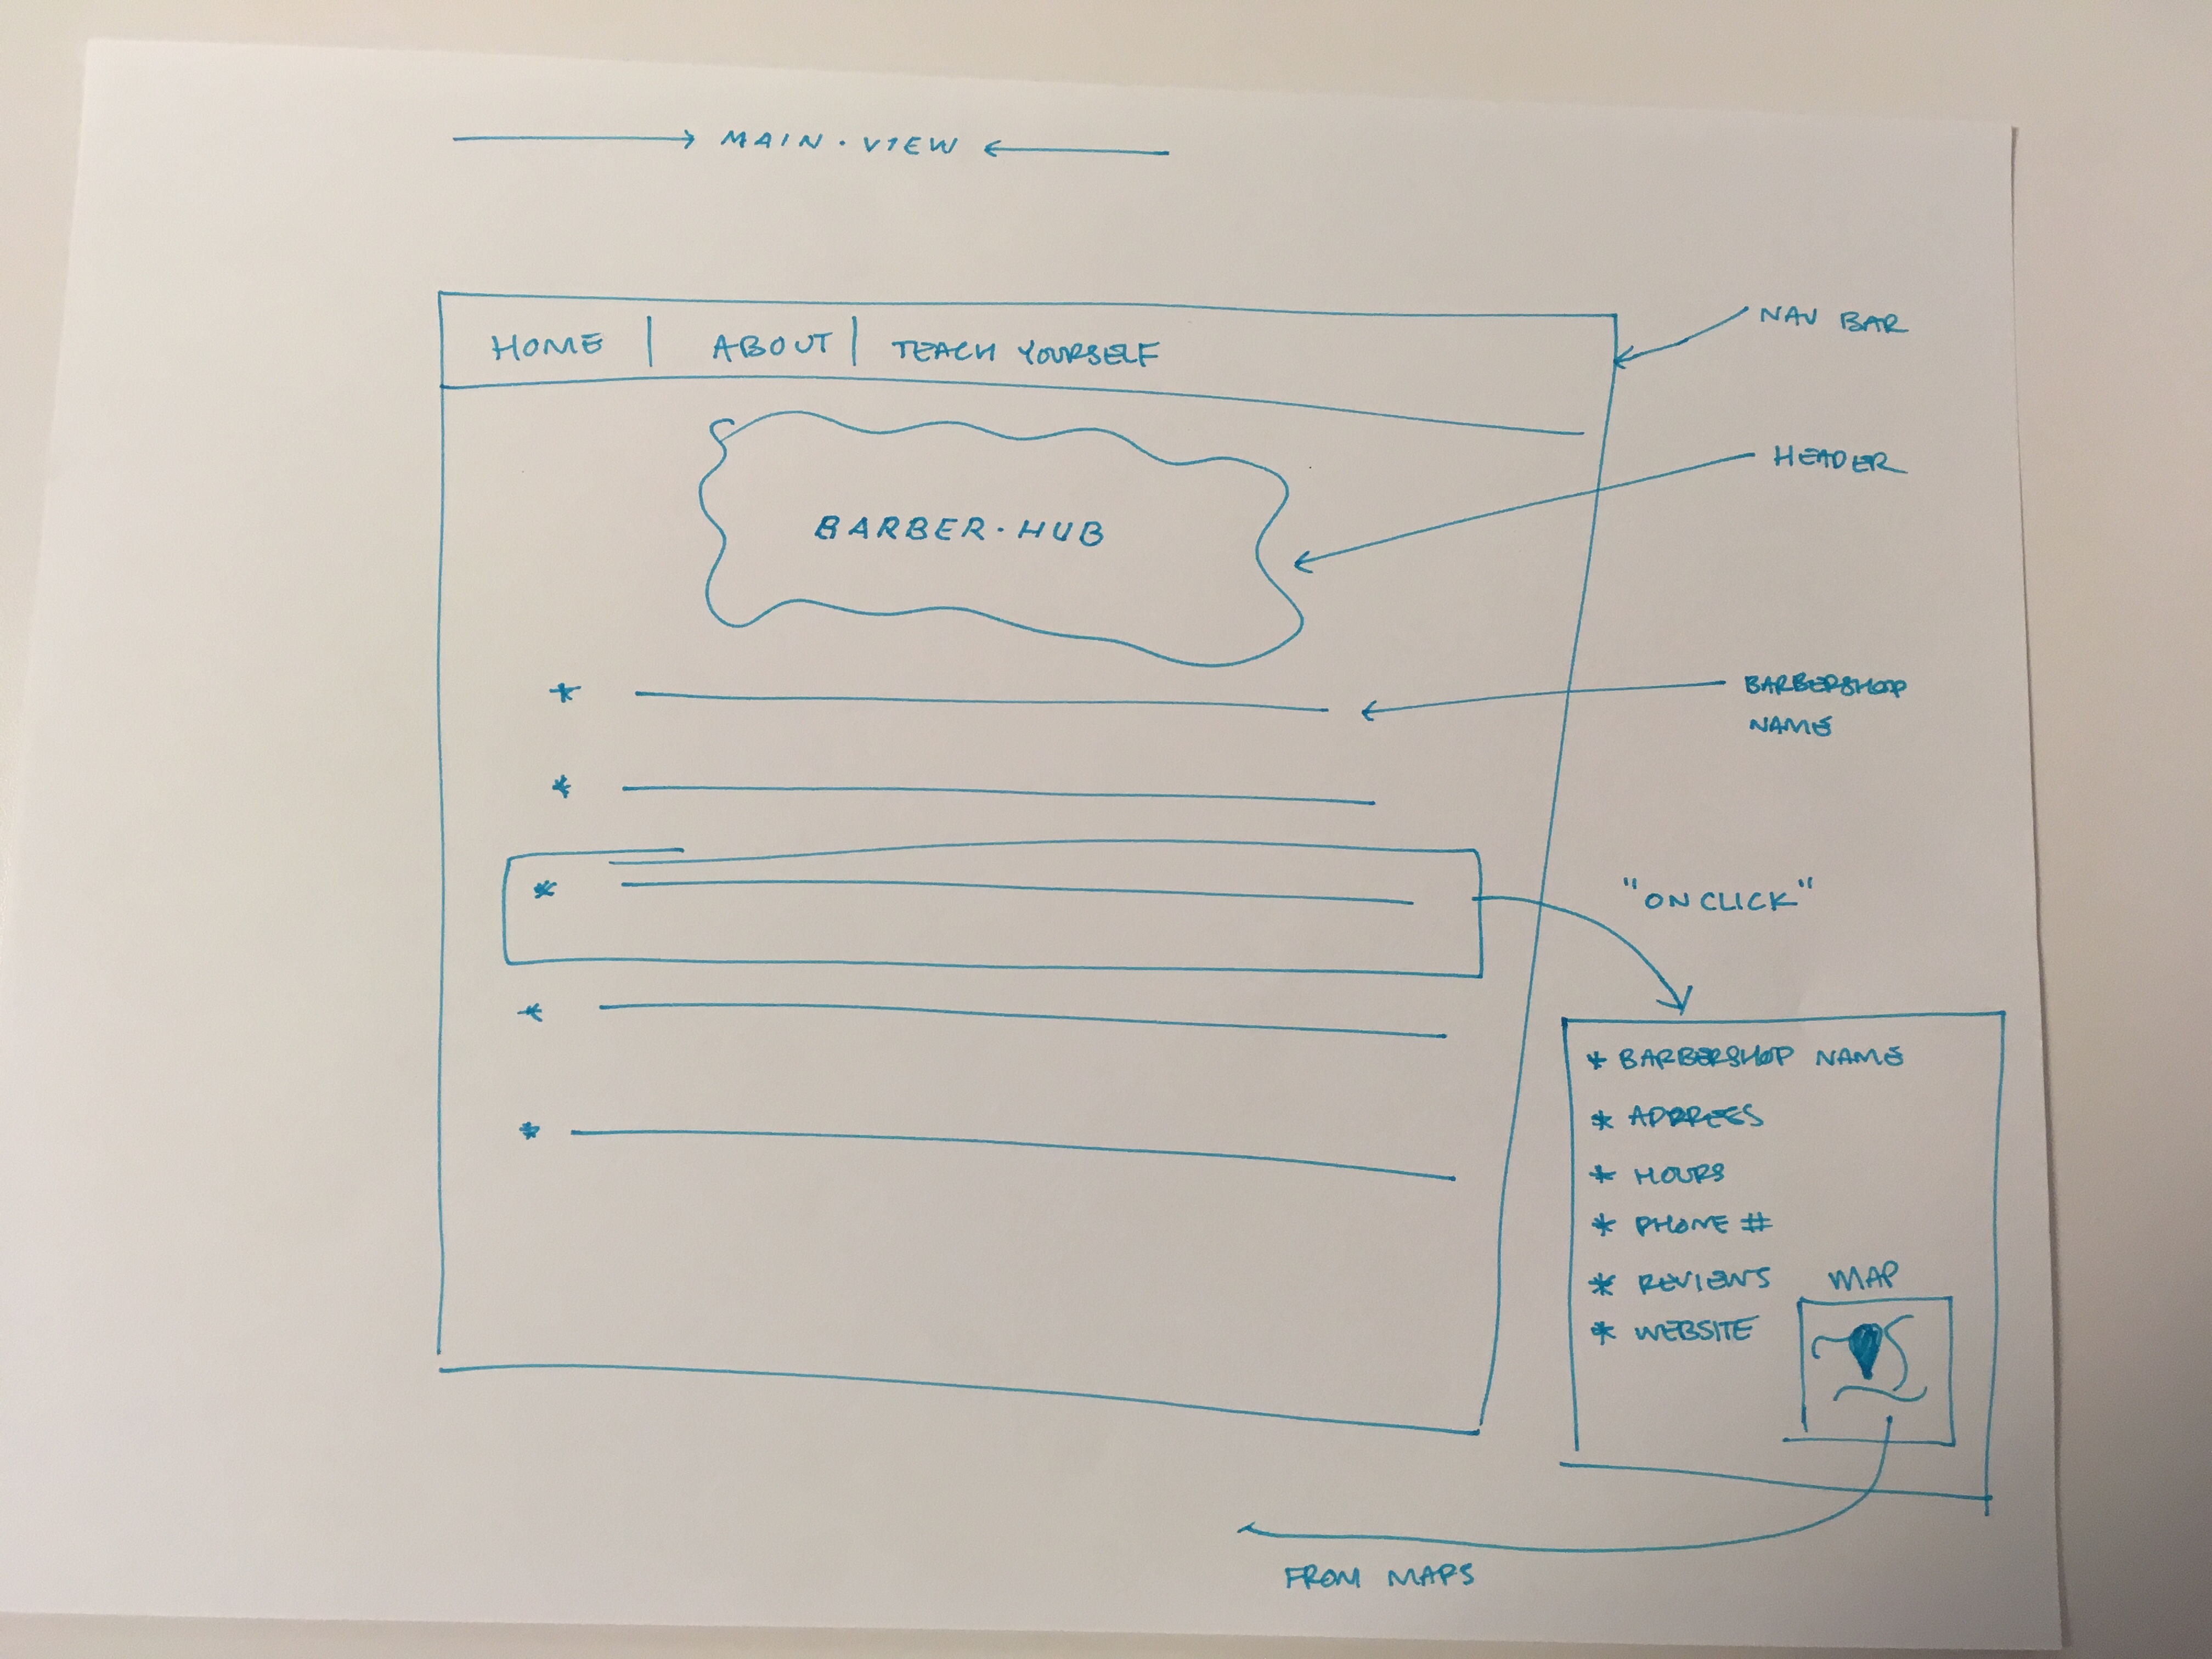 MAIN · VIEW
HOME | ABOUT | TEACH YOURSELF
NAV BAR
HEADER
BARBER · HUB
*
BARBERSHOP
NAME
*
*
"ONCLICK"
*
*
* BARBERSHOP NAME
* ADDRESS
* HOURS
* PHONE #
* REVIEWS
MAP
* WEBSITE
FROM MAPS